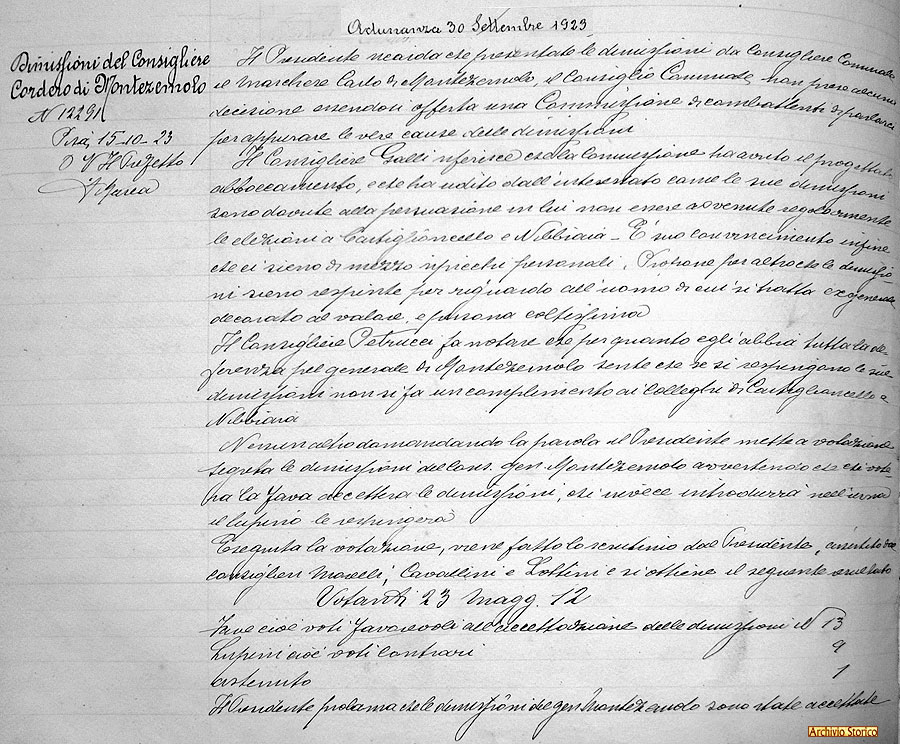 Adunanza 30 Settembre 1923
Dimissioni del Consigliere
Cordero di Montezemolo
N 12291
Pisa, 15-10-23
V Il Prefetto
Il Presidente ricorda che presentate le dimissioni da Consigliere Comunale
il Marchese Carlo di Montezemolo, il Consiglio Comunale non prese alcuna
decisione essendosi offerta una Commissione di combattenti di parlarci
per appurare le vere cause delle dimissioni
Il Consigliere Galli riferisce che la Commissione ha avuto il progettato
abboccamento, e che ha udito dall'interessato come le sue dimissioni
sono dovute alla persuasione in lui non essere avvenute regolarmente
le elezioni a Castiglioncello e Nibbiaia - È suo convincimento infine
che ci sieno di mezzo ripicchi personali. Propone per altro che le dimissio-
ni sieno respinte per riguardo all'uomo di cui si tratta ex generale
decorato al valore, e persona coltissima
Il Consigliere Petrucci fa notare che per quanto egli abbia tutta la de-
ferenza pel generale di Montezemolo sente che se si respingono le sue
dimissioni non si fa un complemento ai Colleghi di Castiglioncello e
Nibbiaia
Nessun altro domandando la parola il Presidente mette a votazione
segreta le dimissioni del Cons. Gen. Montezemolo avvertendo che chi vote-
rà la fava accetterà le dimissioni, chi invece introdurrà nell'urna
il lupino le respingerà
Eseguita la votazione, viene fatto lo scrutinio dal Presidente, assistito dai
consiglieri Maveli, Cavallini e Lottini e si ottiene il seguente risultato
Votanti 23 Magg. 12
Fave cioè voti favorevoli all'accettazione delle dimissioni N 13
Lupini cioè voti contrari 9
Astenuto 1
Il Presidente proclama che le dimissioni del gen Montezemolo sono state accettate
Archivio Storico